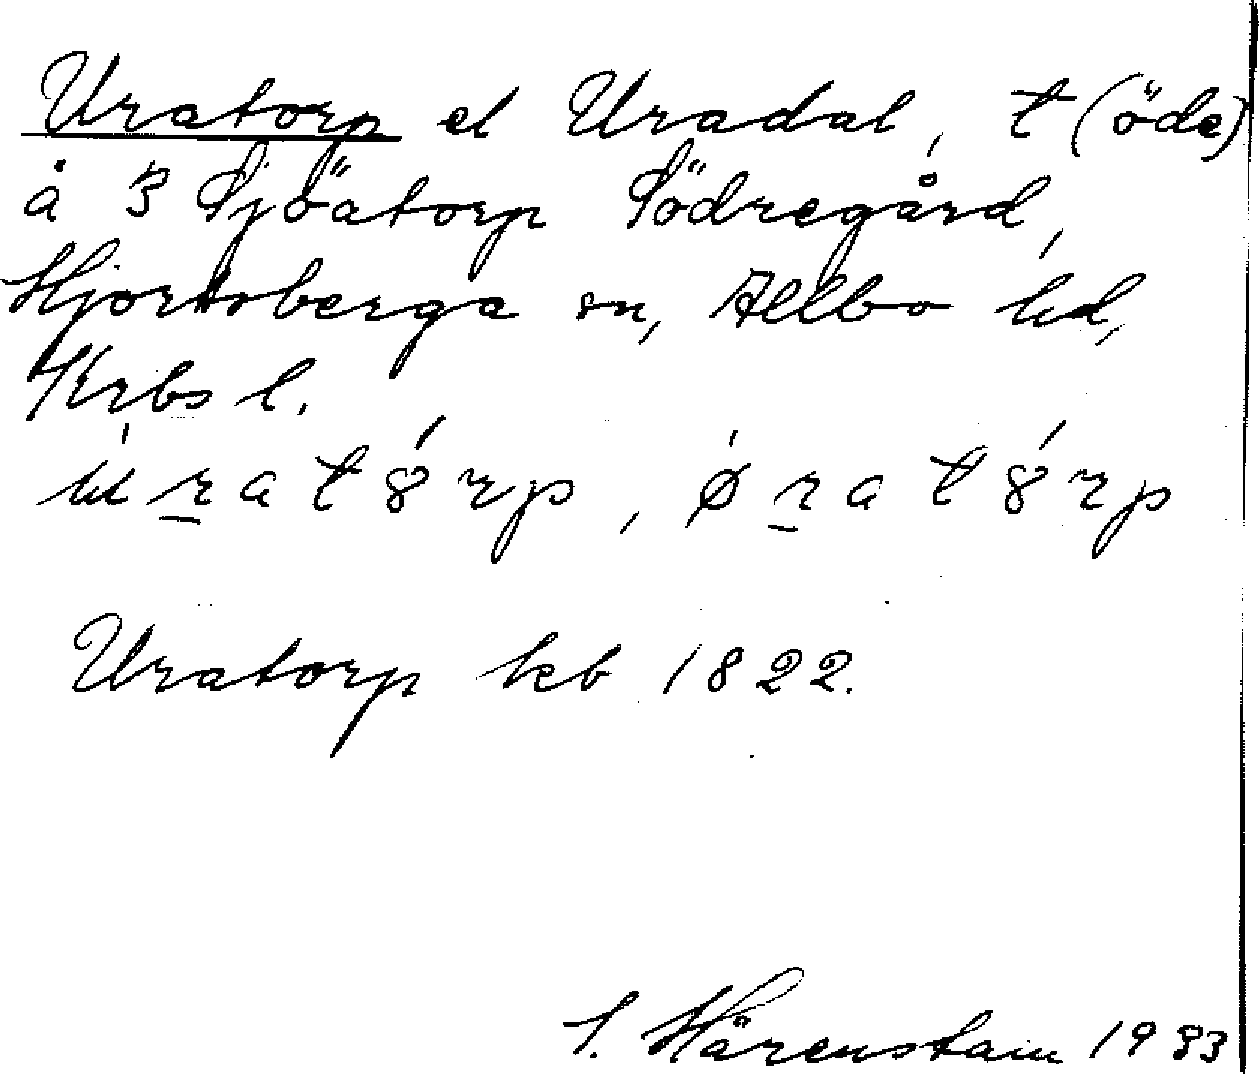 Uratorp el Uradal, t (öde)
å 3 Sjöatorp Södregård,
Hjortsberga sn, Allbo hd,
Krbs l.
úratórp, ǿratórp
Uratorp kb 1822.
S. Härenstam 1983